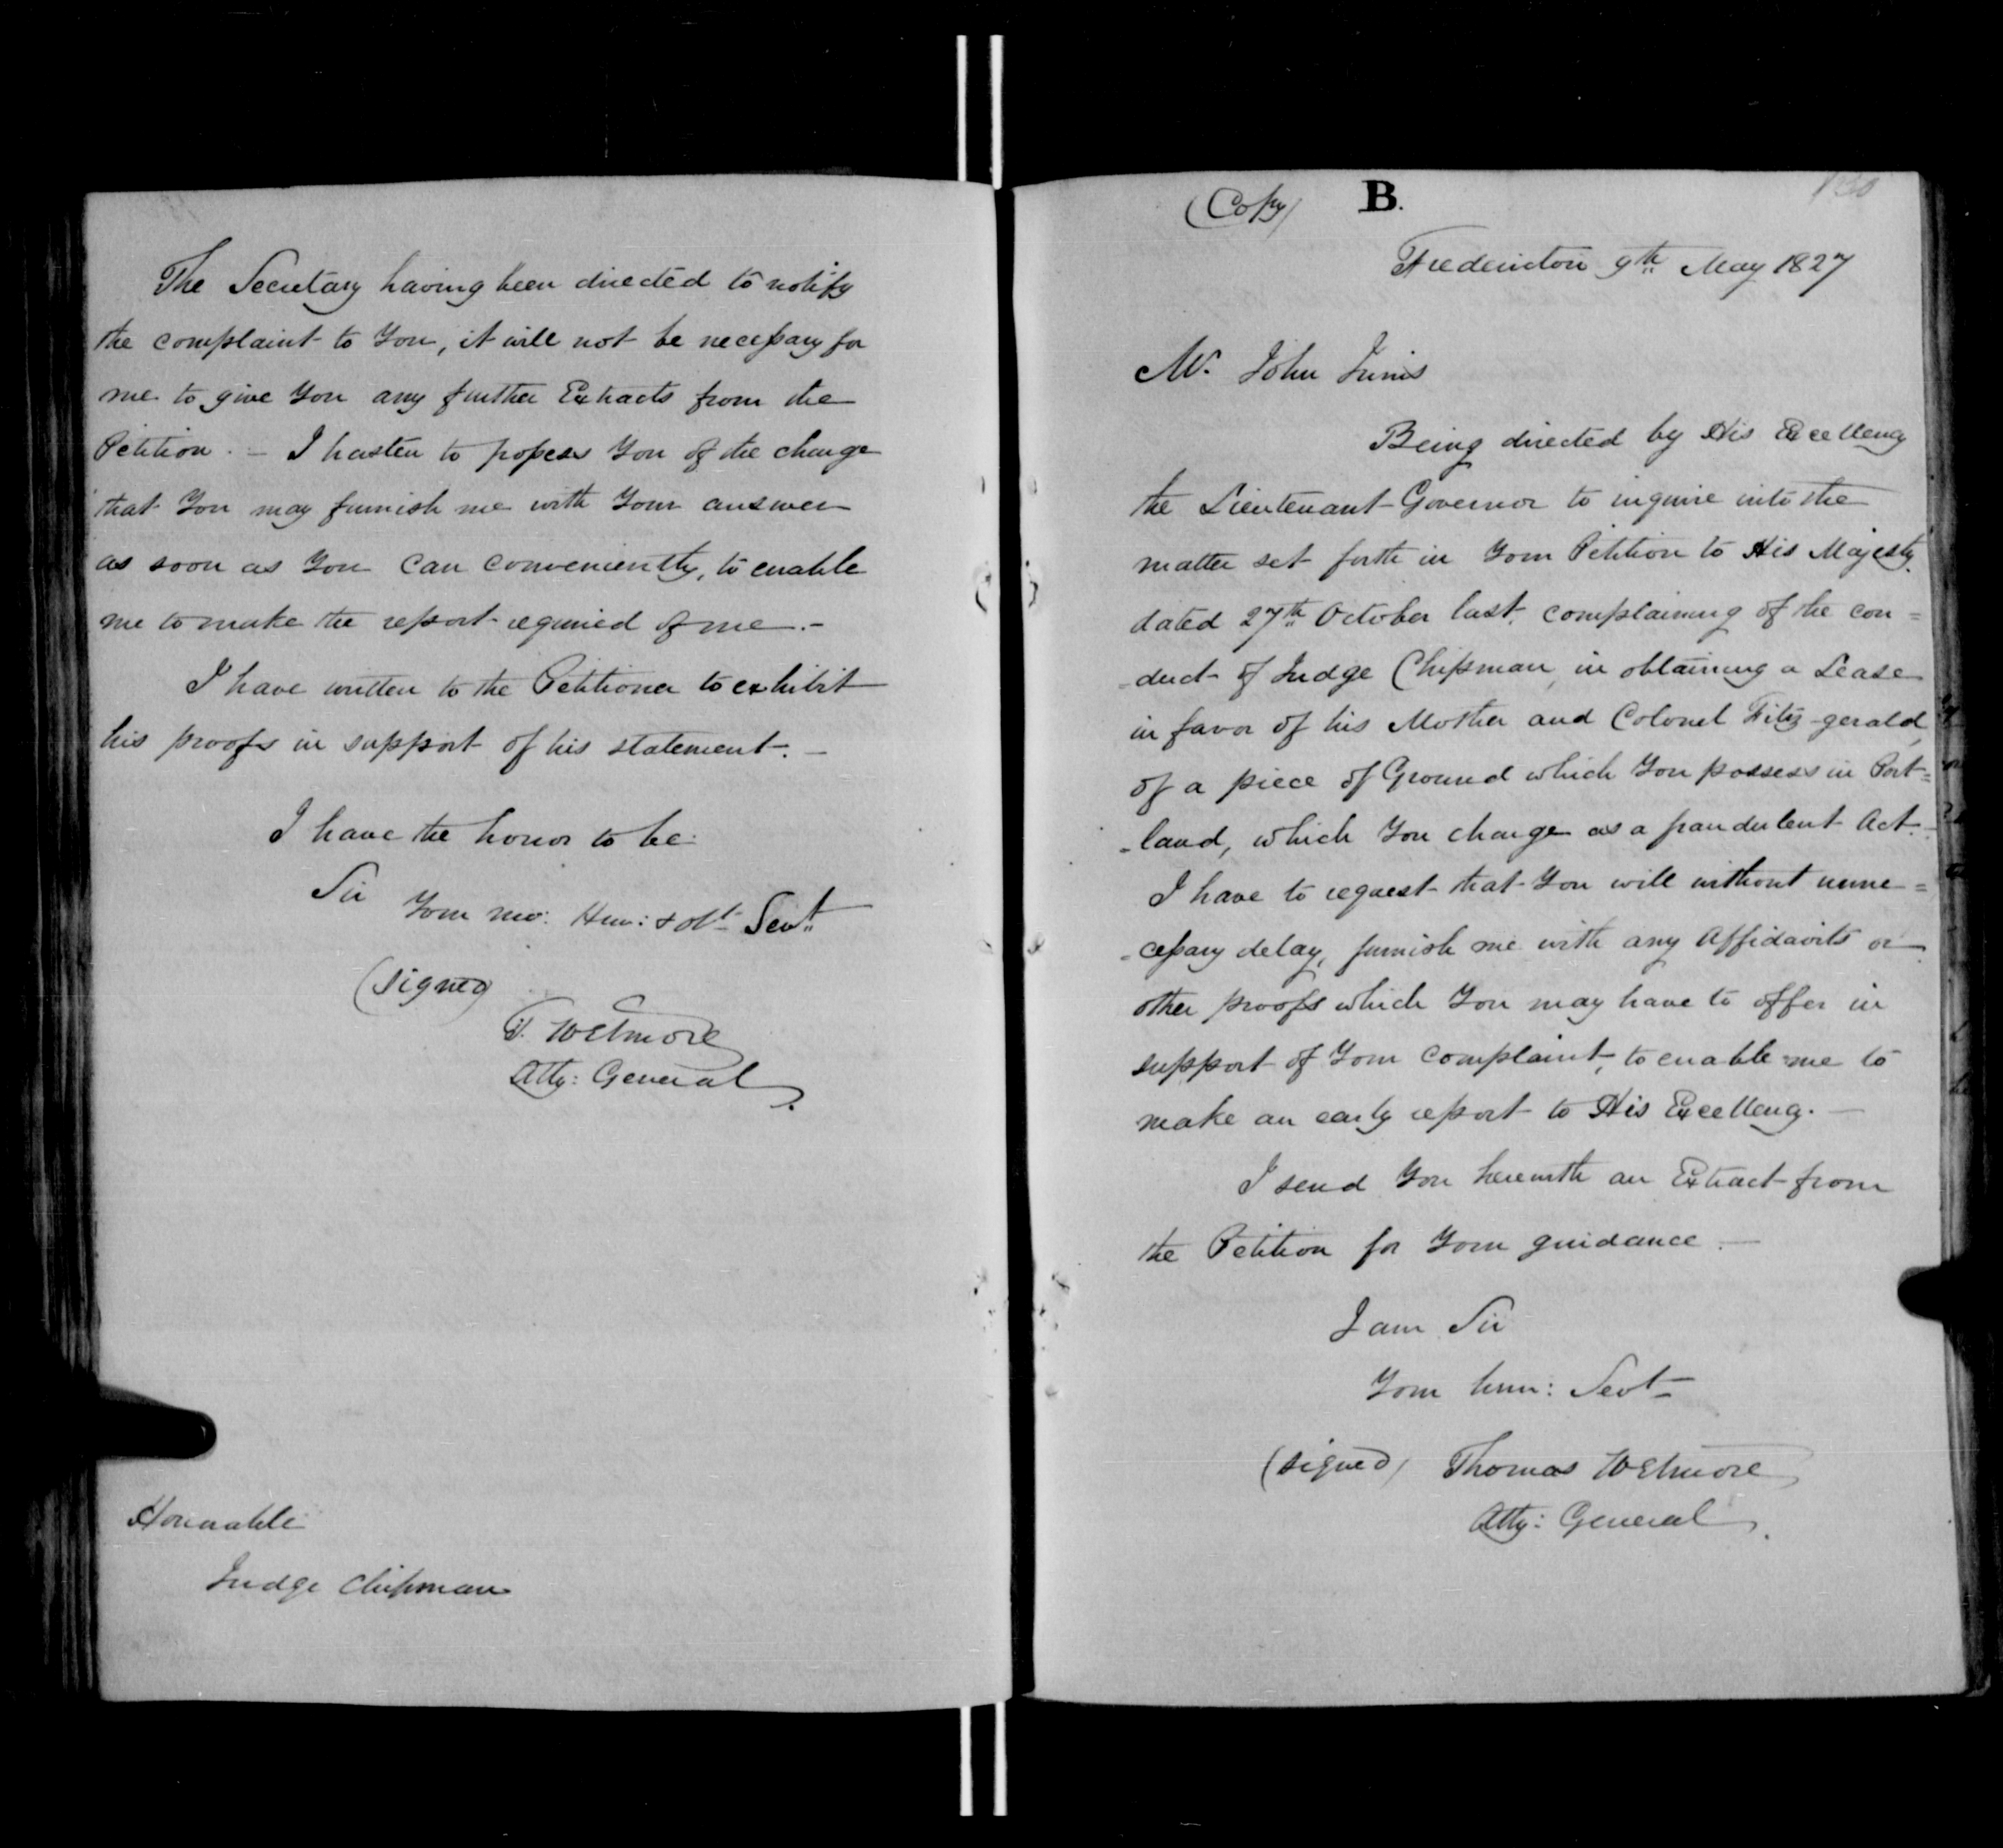 The Secretary having been directed to notify
the complaint to You, it will not be necessary for
me to give You any further Extracts from the
Petition. – I hasten to possess You of the charge
that You may furnish me with Your answer
as soon as You can conveniently, to enable
me to make the report required of me. –
I have written to the Petitioner to exhibit
his proofs in support of his statement. –
I have the honor to be
Sir
Your mo: Hum: & Obt Servt
(Signed)
T. Wetmore
Atty: General
Honorable
Judge Chipman
(Copy) B.
Fredericton 9th May 1827
Mr. John
Being directed by His Excellency
the Lieutenant-Governor to inquire into the
matter set forth in Your Petition to His Majesty,
dated 27th October last, complaining of the con=
=duct of Judge Chipman, in obtaining a Lease
in favor of his Mother and Colonel Fitz-gerald,
of a piece of Ground which You possess in Port=
=land, which You charge as a fraudulent Act. –
I have to request that You will without unne=
=cessary delay, furnish me with any Affidavits or
other proofs which You may have to offer in
support of Your complaint, to enable me to
make an early report to His Excellency. –
I send You herewith an Extract from
the Petition for Your guidance. –
I am Sir
Your hum: Servt
(signed) Thomas Wetmore
Atty: General.